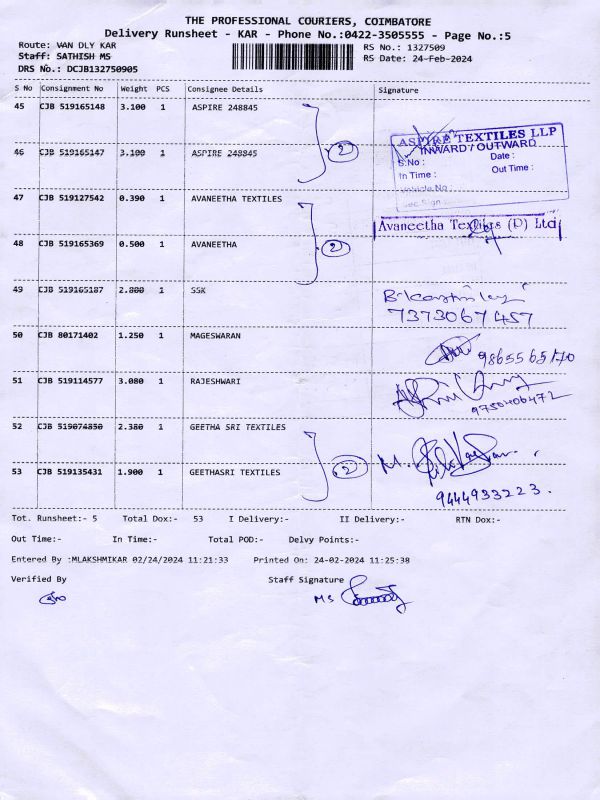 THE PROFESSIONAL COURIERS, COIMBATORE
Delivery Runsheet - KAR - Phone No.:0422-3505555 - Page No.:5
Route: VAN DLY KAR
Staff: SATHISH MS
DRS No.: DCJB132750905
RS No.: 1327509
RS Date: 24-Feb-2024
S No Consignment No Weight PCS Consignee Details Signature
45 CJB 519165148 3.100 1 ASPIRE 248845
46 CJB 519165147 3.100 1 ASPIRE 248845
2
ASPIRE TEXTILES LLP
INWARD / OUTWARD
S.No : Date :
In Time : Out Time :
Vehicle No :
Sec Sign :
47 CJB 519127542 0.390 1 AVANEETHA TEXTILES
Avaneetha Textiles (P) Ltd
48 CJB 519165369 0.500 1 AVANEETHA
2
49 CJB 519165187 2.800 1 SSK
7373067457
50 CJB 80171402 1.250 1 MAGESWARAN
51 CJB 519114577 3.080 1 RAJESHWARI
9750406472
52 CJB 519074850 2.380 1 GEETHA SRI TEXTILES
2
53 CJB 519135431 1.900 1 GEETHASRI TEXTILES
9444933223.
Tot. Runsheet:- 5 Total Dox:- 53 I Delivery:- II Delivery:- RTN Dox:-
Out Time:- In Time:- Total POD:- Delvy Points:-
Entered By :MLAKSHMIKAR 02/24/2024 11:21:33 Printed On: 24-02-2024 11:25:38
Verified By Staff Signature
MS